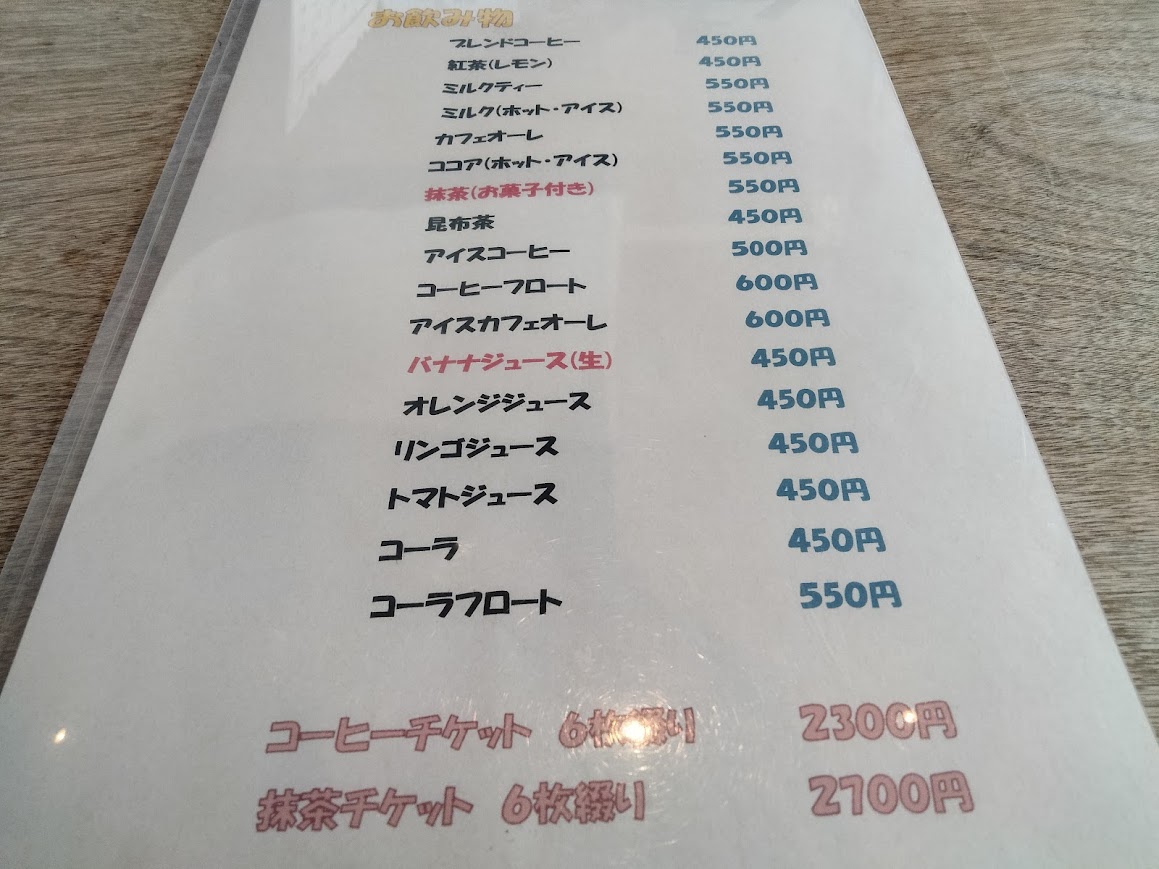 お飲み物
ブレンドコーヒー 450円
紅茶(レモン) 450円
ミルクティー 550円
ミルク(ホット・アイス) 550円
カフェオーレ 550円
ココア(ホット・アイス) 550円
抹茶(お菓子付き) 550円
昆布茶 450円
アイスコーヒー 500円
コーヒーフロート 600円
アイスカフェオーレ 600円
バナナジュース(生) 450円
オレンジジュース 450円
リンゴジュース 450円
トマトジュース 450円
コーラ 450円
コーラフロート 550円
コーヒーチケット 6枚綴り 2300円
抹茶チケット 6枚綴り 2700円